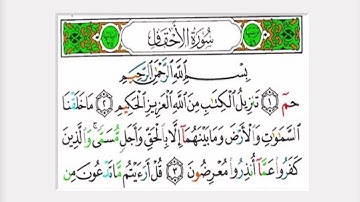 سُورَةُ الأَحْقَافِ
بِسْمِ اللَّهِ الرَّحْمَٰنِ الرَّحِيمِ
حمٓ ۝١ تَنزِيلُ الْكِتَابِ مِنَ اللَّهِ الْعَزِيزِ الْحَكِيمِ ۝٢ مَا خَلَقْنَا
السَّمَاوَاتِ وَالْأَرْضَ وَمَا بَيْنَهُمَا إِلَّا بِالْحَقِّ وَأَجَلٍ مُّسَمًّى ۚ وَالَّذِينَ
كَفَرُوا عَمَّا أُنذِرُوا مُعْرِضُونَ ۝٣ قُلْ أَرَءَيْتُم مَّا تَدْعُونَ مِن